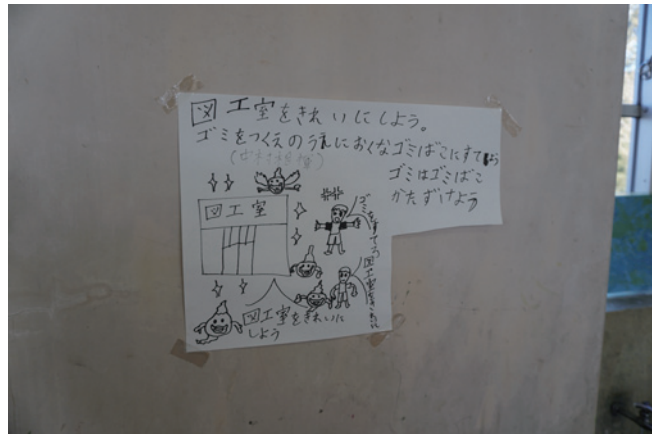 図工室をきれいにしよう。
ゴミをつくえのうえにおくなゴミばこにすてよう
ゴミはゴミばこ
かたずけよう
図工室
ゴミをすてろ
図工室をきれいに
図工室をきれいに
しよう